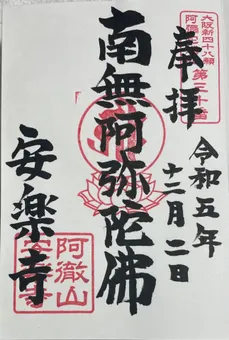 奉拝
大阪新四十八願
阿弥陀
令和五年
十二月二日
南無阿弥陀佛
安楽寺
阿徹山
安楽寺